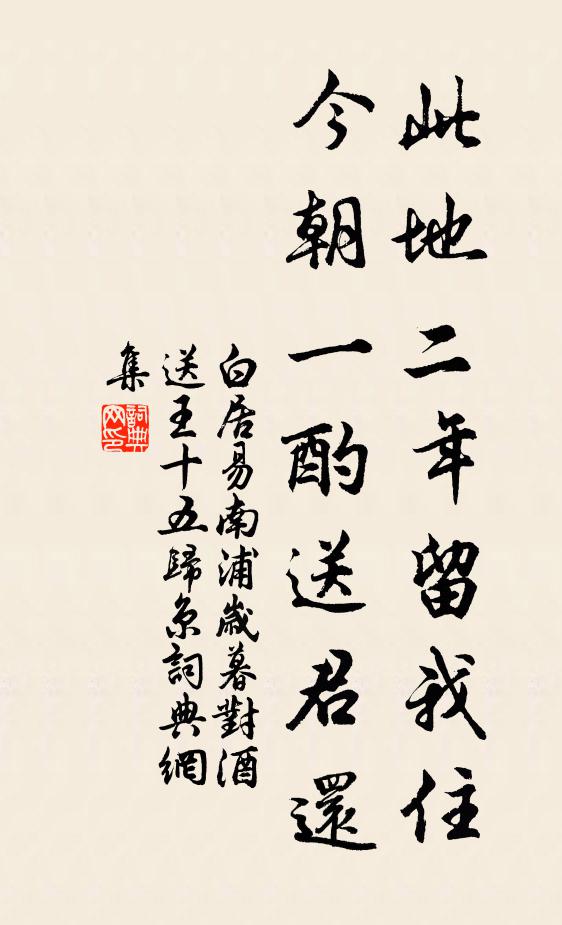 此地二年留我住
今朝一酌送君還
白居易南浦歲暮對酒
送王十五歸京詞典網
集
詞典网印